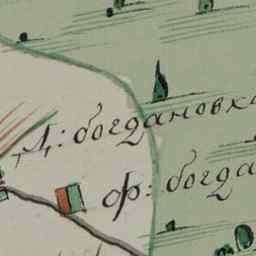 Д: богдановка
ф: богда